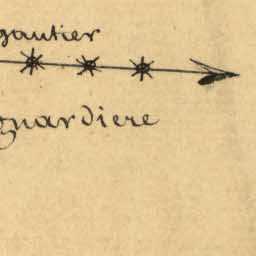 gautier
guardiere